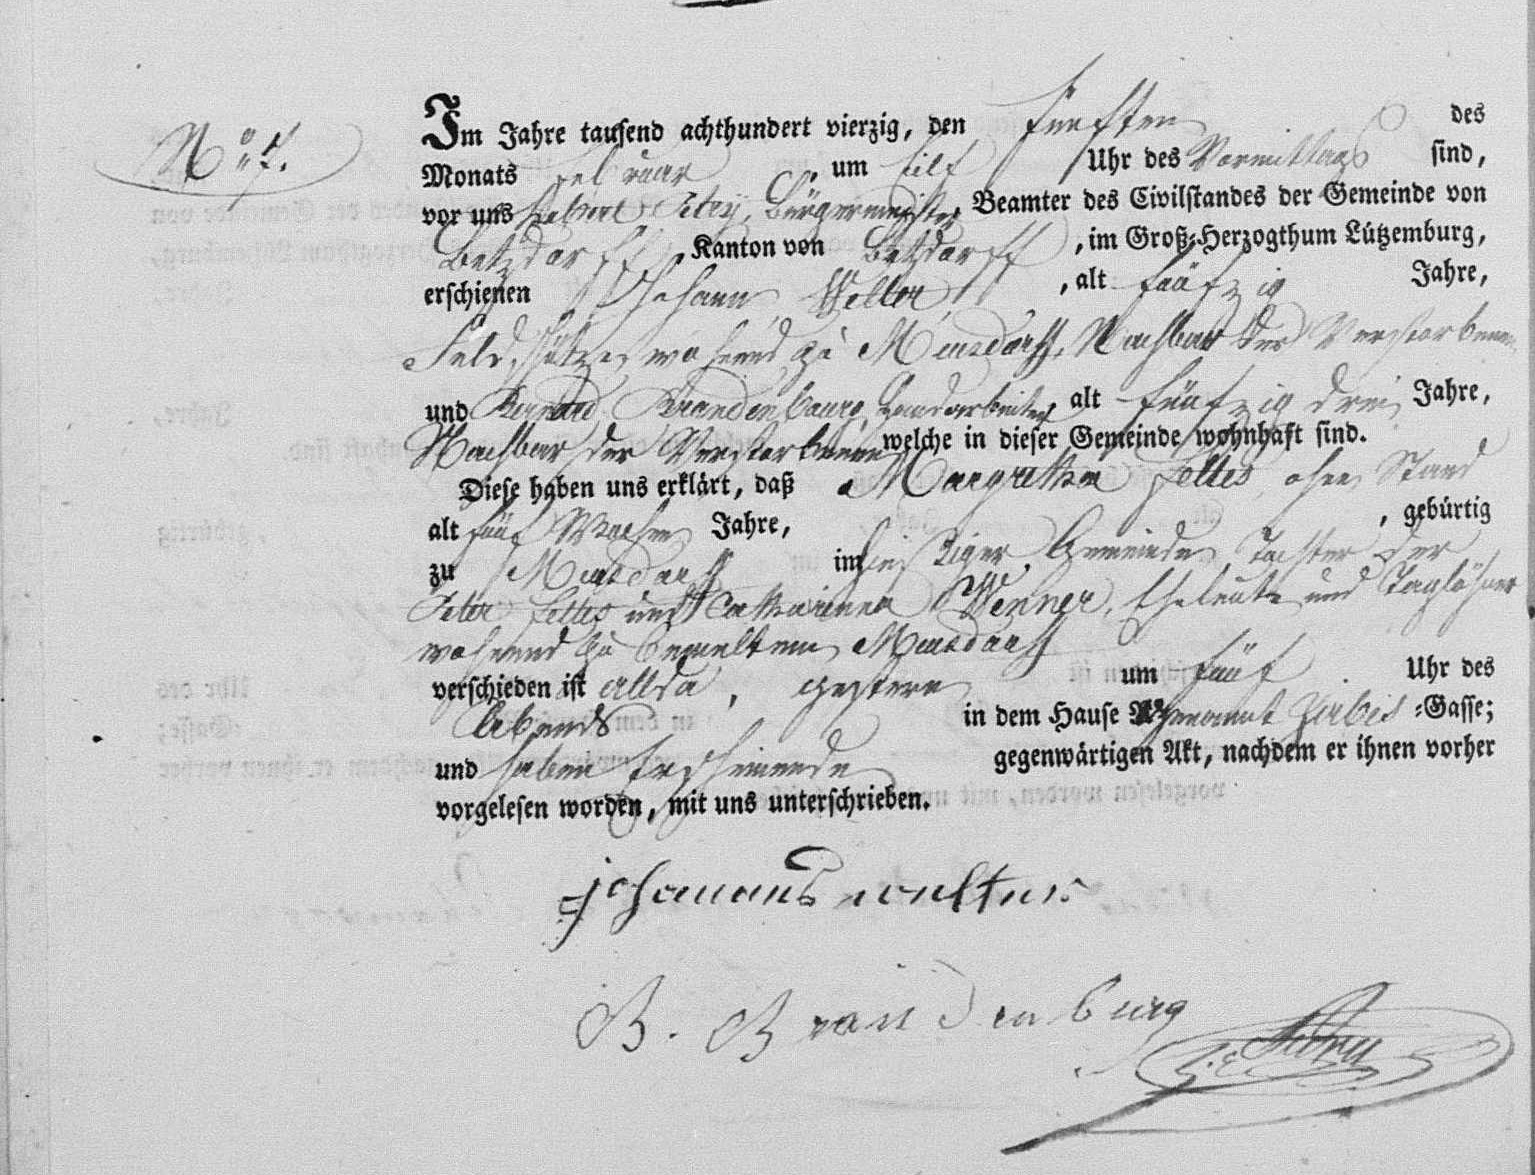 Nº 7.
Im Jahre tausend achthundert vierzig, den fünften des
Monats Februar, um eilf Uhr des Vormittags sind,
vor uns Petry, Bürgermeister, Beamter des Civilstandes der Gemeinde von
Betzdorff, Kanton von Betzdorff, im Groß-Herzogthum Lützemburg,
erschienen Johann Welter, alt fünfzig Jahre,
Feldschütze, wohnend zu Mensdorff, Nachbar der Verstorbenen
und Bernard Brandenbourg, Landarbeiter, alt fünfzig drei Jahre,
Nachbar der Verstorbenen welche in dieser Gemeinde wohnhaft sind.
Diese haben uns erklärt, daß Margretha Feltes ohne Stand
alt fünf Wochen Jahre, gebürtig
zu Mensdorff im hiesiger Gemeinde Tochter der
Peter Feltes und Catharina Wenner, Eheleute und Taglöhner
wohnend zu bemeltem Mensdorff
verschieden ist allda, gestern um fünf Uhr des
Abends in dem Hause genannt Zirbes -Gasse;
und haben Erscheinende gegenwärtigen Akt, nachdem er ihnen vorher
vorgelesen worden, mit uns unterschrieben.
johannes welter
B. Brandenburg
Petry